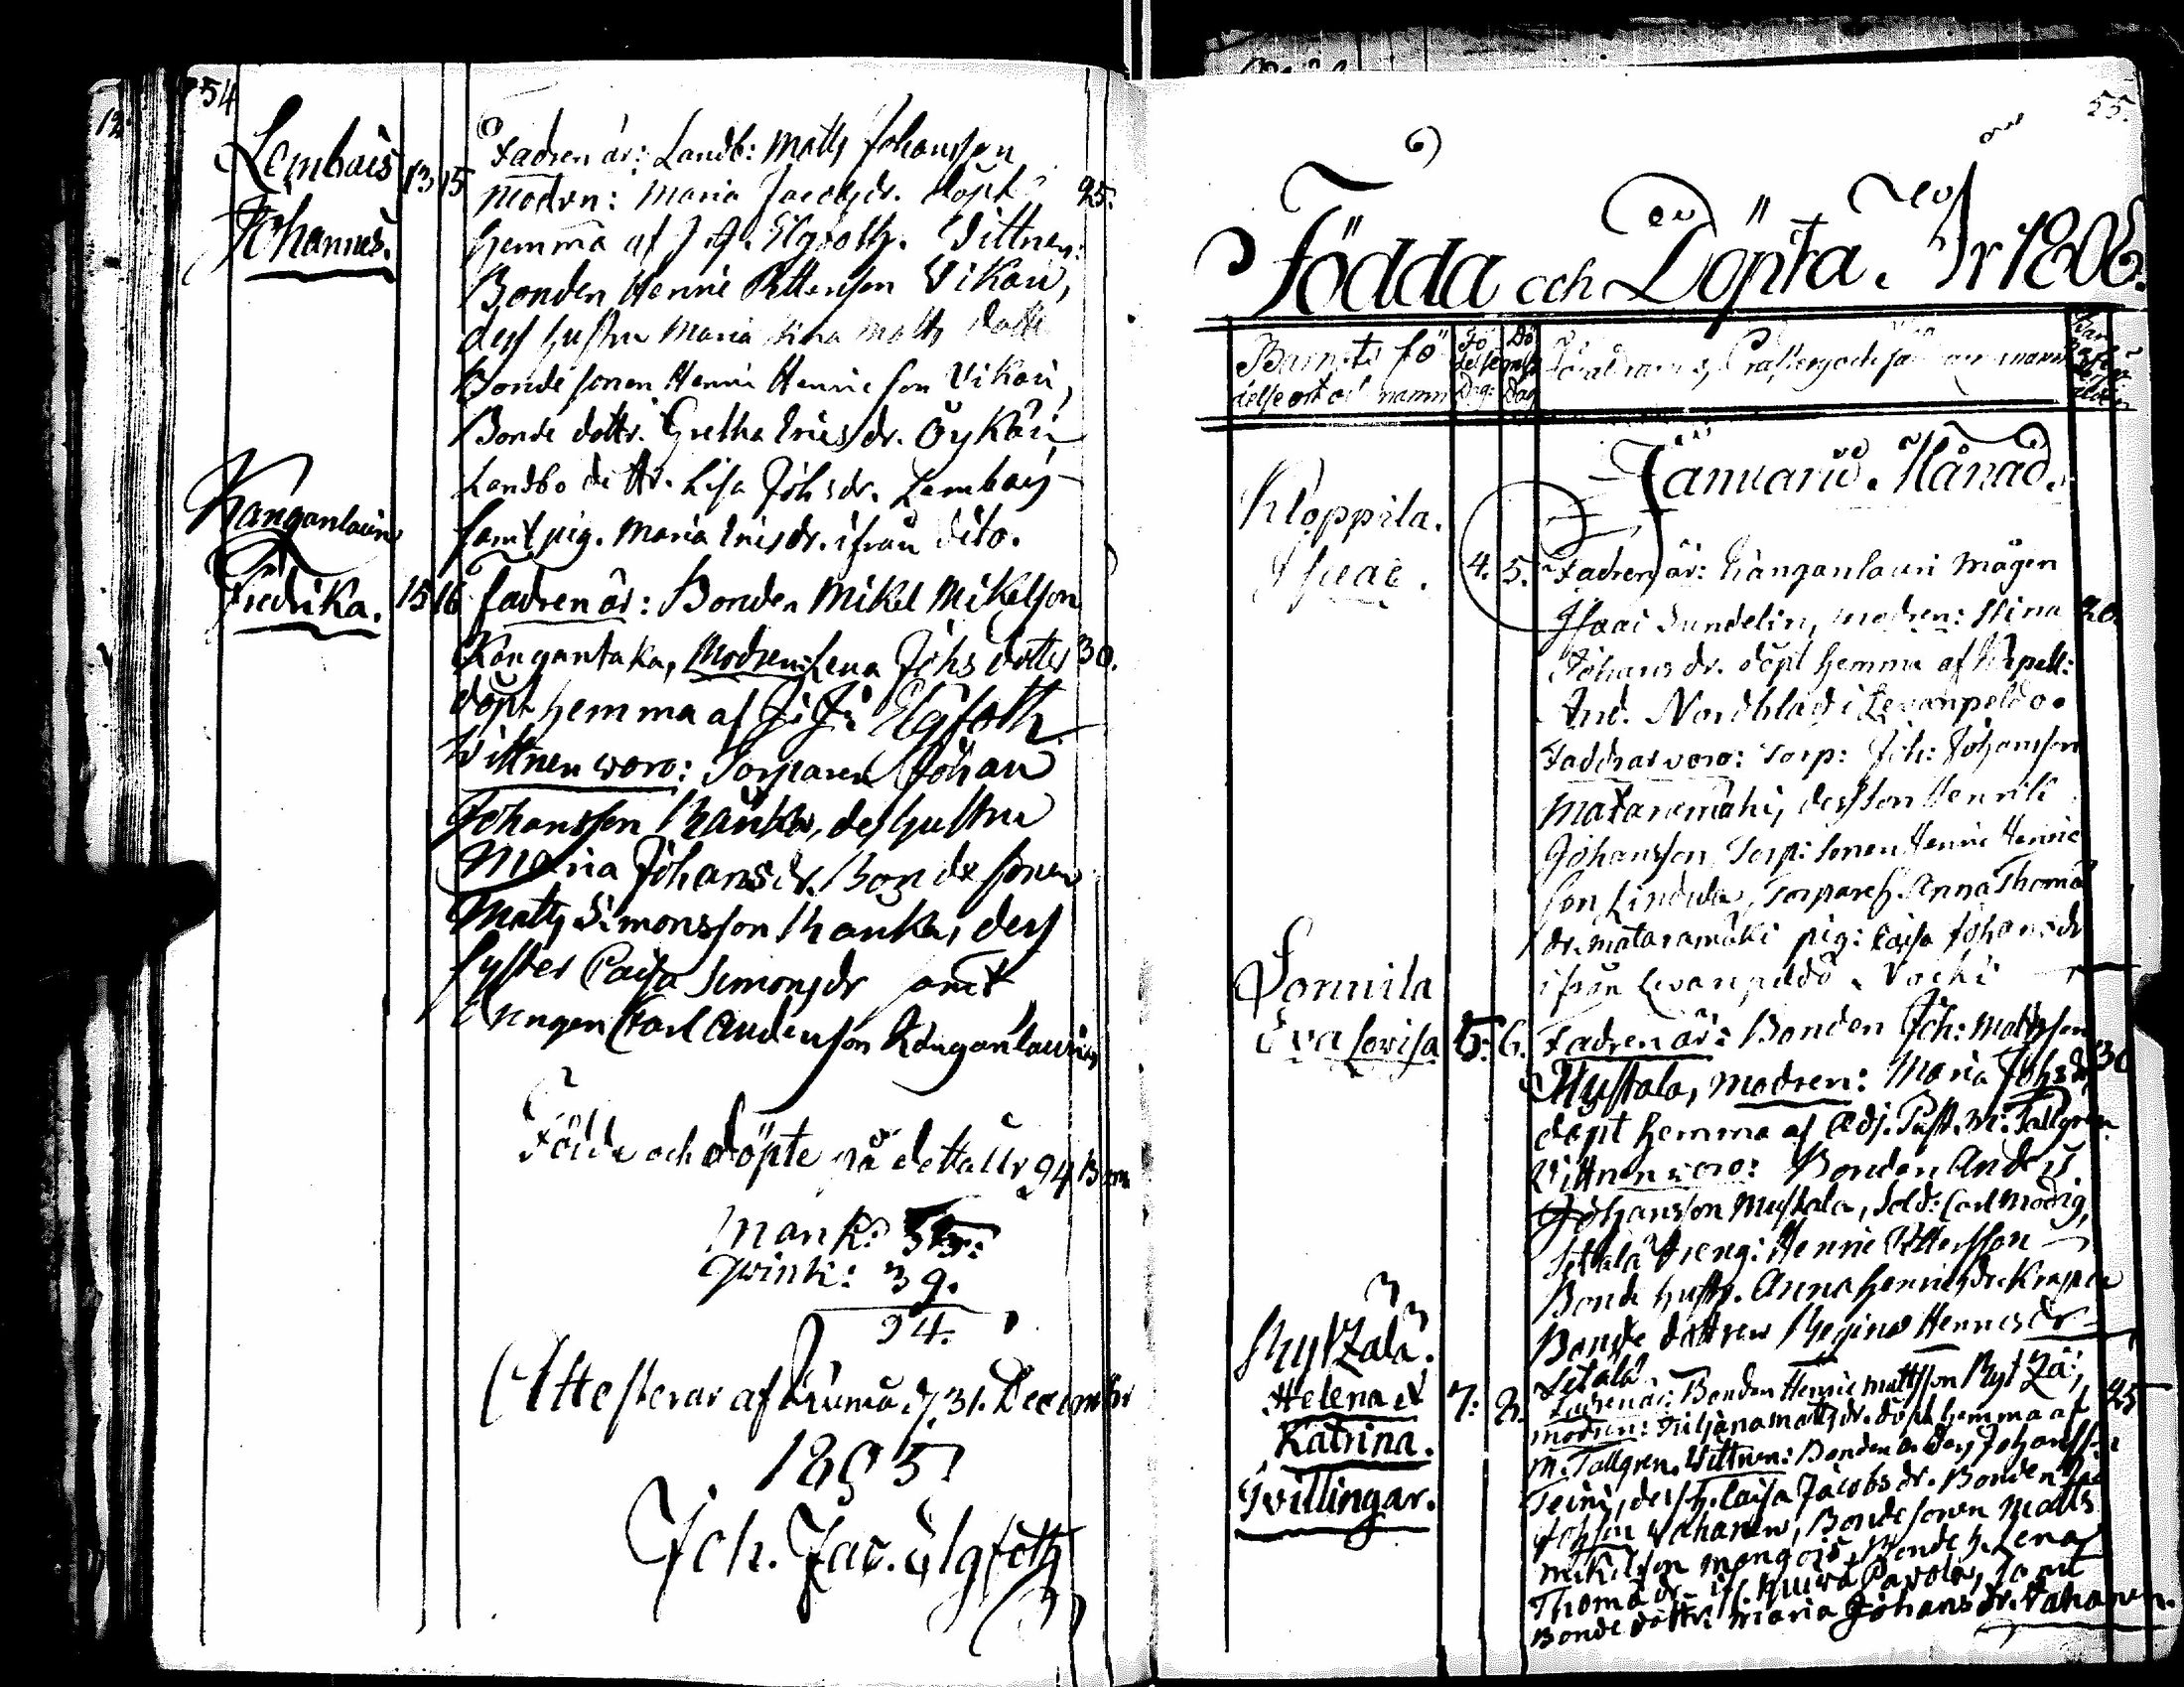 54
Lembais 13 15
Fadren är: Landb: Matts Johansson
Modren: Maria Jacobsdr. döpt 25.
Johannes.
hemma af J. J. Elgfoth. Vittnen:
Bonden Henric Pettersson Vikari,
dess hustru Maria Stina Matts dotter
Bonde sonen Henric Henricsson Vikari,
Bonde dottr. Gretha Ericsdr. Öykäri
Landbo dottr. Lisa Johsdr. Lembais
samt pig. Maria Ericsdr. ifrån dito.
Kanganlauri
Fredrika. 15 16
Fadren är: Bonden Mikel Mikelson
Kangantaka, Modren: Lena Johs dotter 30.
döpt hemma af J: J: Elgfoth
Vittnen woro: Torparen Johan
Johansson Ranka, dess hustru
Maria Johansdr. Bonde sonen
Matts Simonsson Ranka, dess
syster Caisa Simonsdr samt
Drengen Carl Andersson Kanganlauri
Födde och döpte på detta År 94 Barn
Mank: 55:
Qvink: 39.
94.
Attesterar af Euraå d. 31. December
1805
Joh. Jac. Elgfoth
55.
Födda och Döpta. År 1806.
Barnets fö
delse ort och namn
Fö
delse
Dag:
Dö
pelse
Dag
Januarii. Månad.
Kloppila.
Isaac. 4. 5.
Fadren är: Kanganlauri mågen
Isaac Sundelin, modren: Stina 20.
Johansdr. döpt hemma af Capell:
And. Nordblad i Levanpeldo.
Faddrar voro: Torp: Joh: Johansson
Mataramäki, dess son Henrik
Johansson Torp: sonen Henric Henric
son Lindula, Torpares. Anna Thomæ
dr. Mataramäki pig: Caisa Johansdr
ifrån Levanpeldo
Sonnila
Eva Lovisa 5: 6.
Fadren är: Bonden Joh: Mattsson
Mustala, modren: Maria Johsdr 30
döpt hemma af Adj. Past. M: Tallgren.
Vittnen voro: Bonden Anders
Johansson Mustala, Sold: Carl Modig,
Setälä Dreng: Henric Pettersson
Bonde hustr. Anna Henricsdr. Krapila
Bonde dottren Regina Henricsdr
Setälä.
Rytzälä.
Helena et 7: 8.
Katrina.
Tvillingar.
Fadren är: Bonden Henric Mattsson Rytzä:, 25
modren: Juliana Mattsdr. döpt hemma af
M. Tallgren. Vittnen: Bonden Anders Johansson
Teini, dess h. Caisa Jacobsdr. Bonden
Johson Vahanen, Bondesonen Matts
Mikelsson Mangois, Bonde h. Lena
Thomædr. Pavola, samt
Bonde dottr: Maria Johansdr. Vahanen.